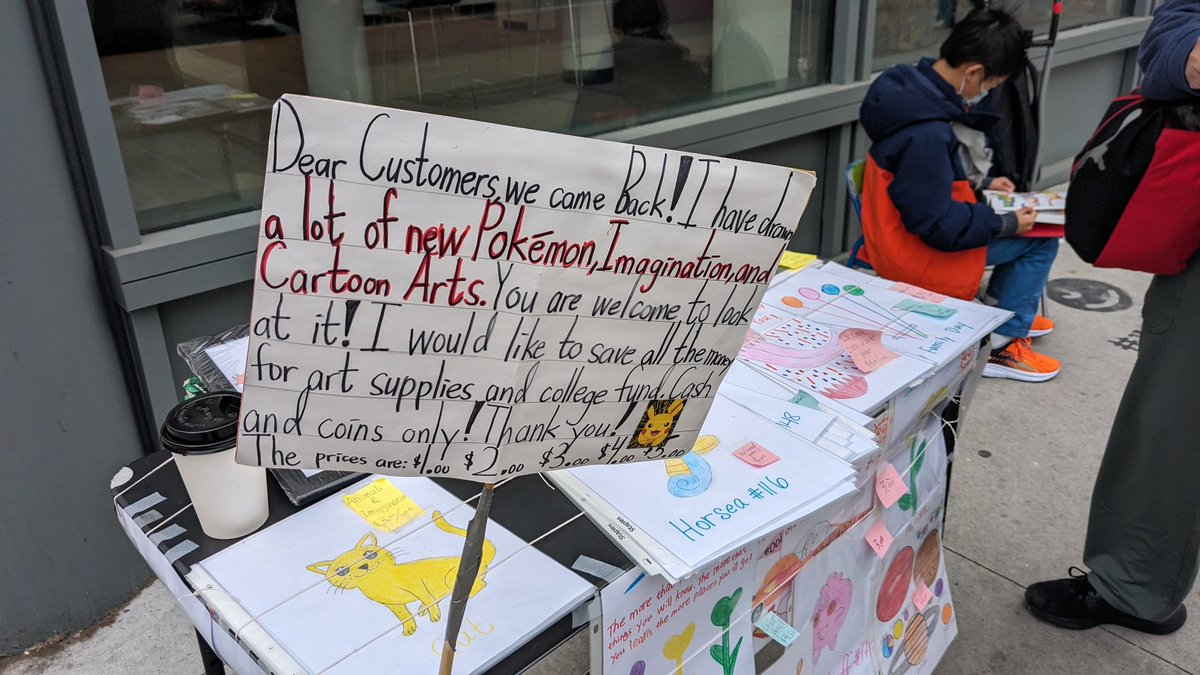 Dear Customers, we came Back! I have drawn
a lot of new Pokémon, Imagination, and
Cartoon Arts. You are welcome to look
at it! I would like to save all the money
for art supplies and college fund. Cash
and coins only! Thank you!
The prices are: $1.00 $2.00 $3.00 $4.00 $5.00
Animals
&
Imagination
Cat
Horsea #116
Staples
Staples
Family Day
148
3.00
The more that
things you will know. the more that
you learn the more places you'll go!